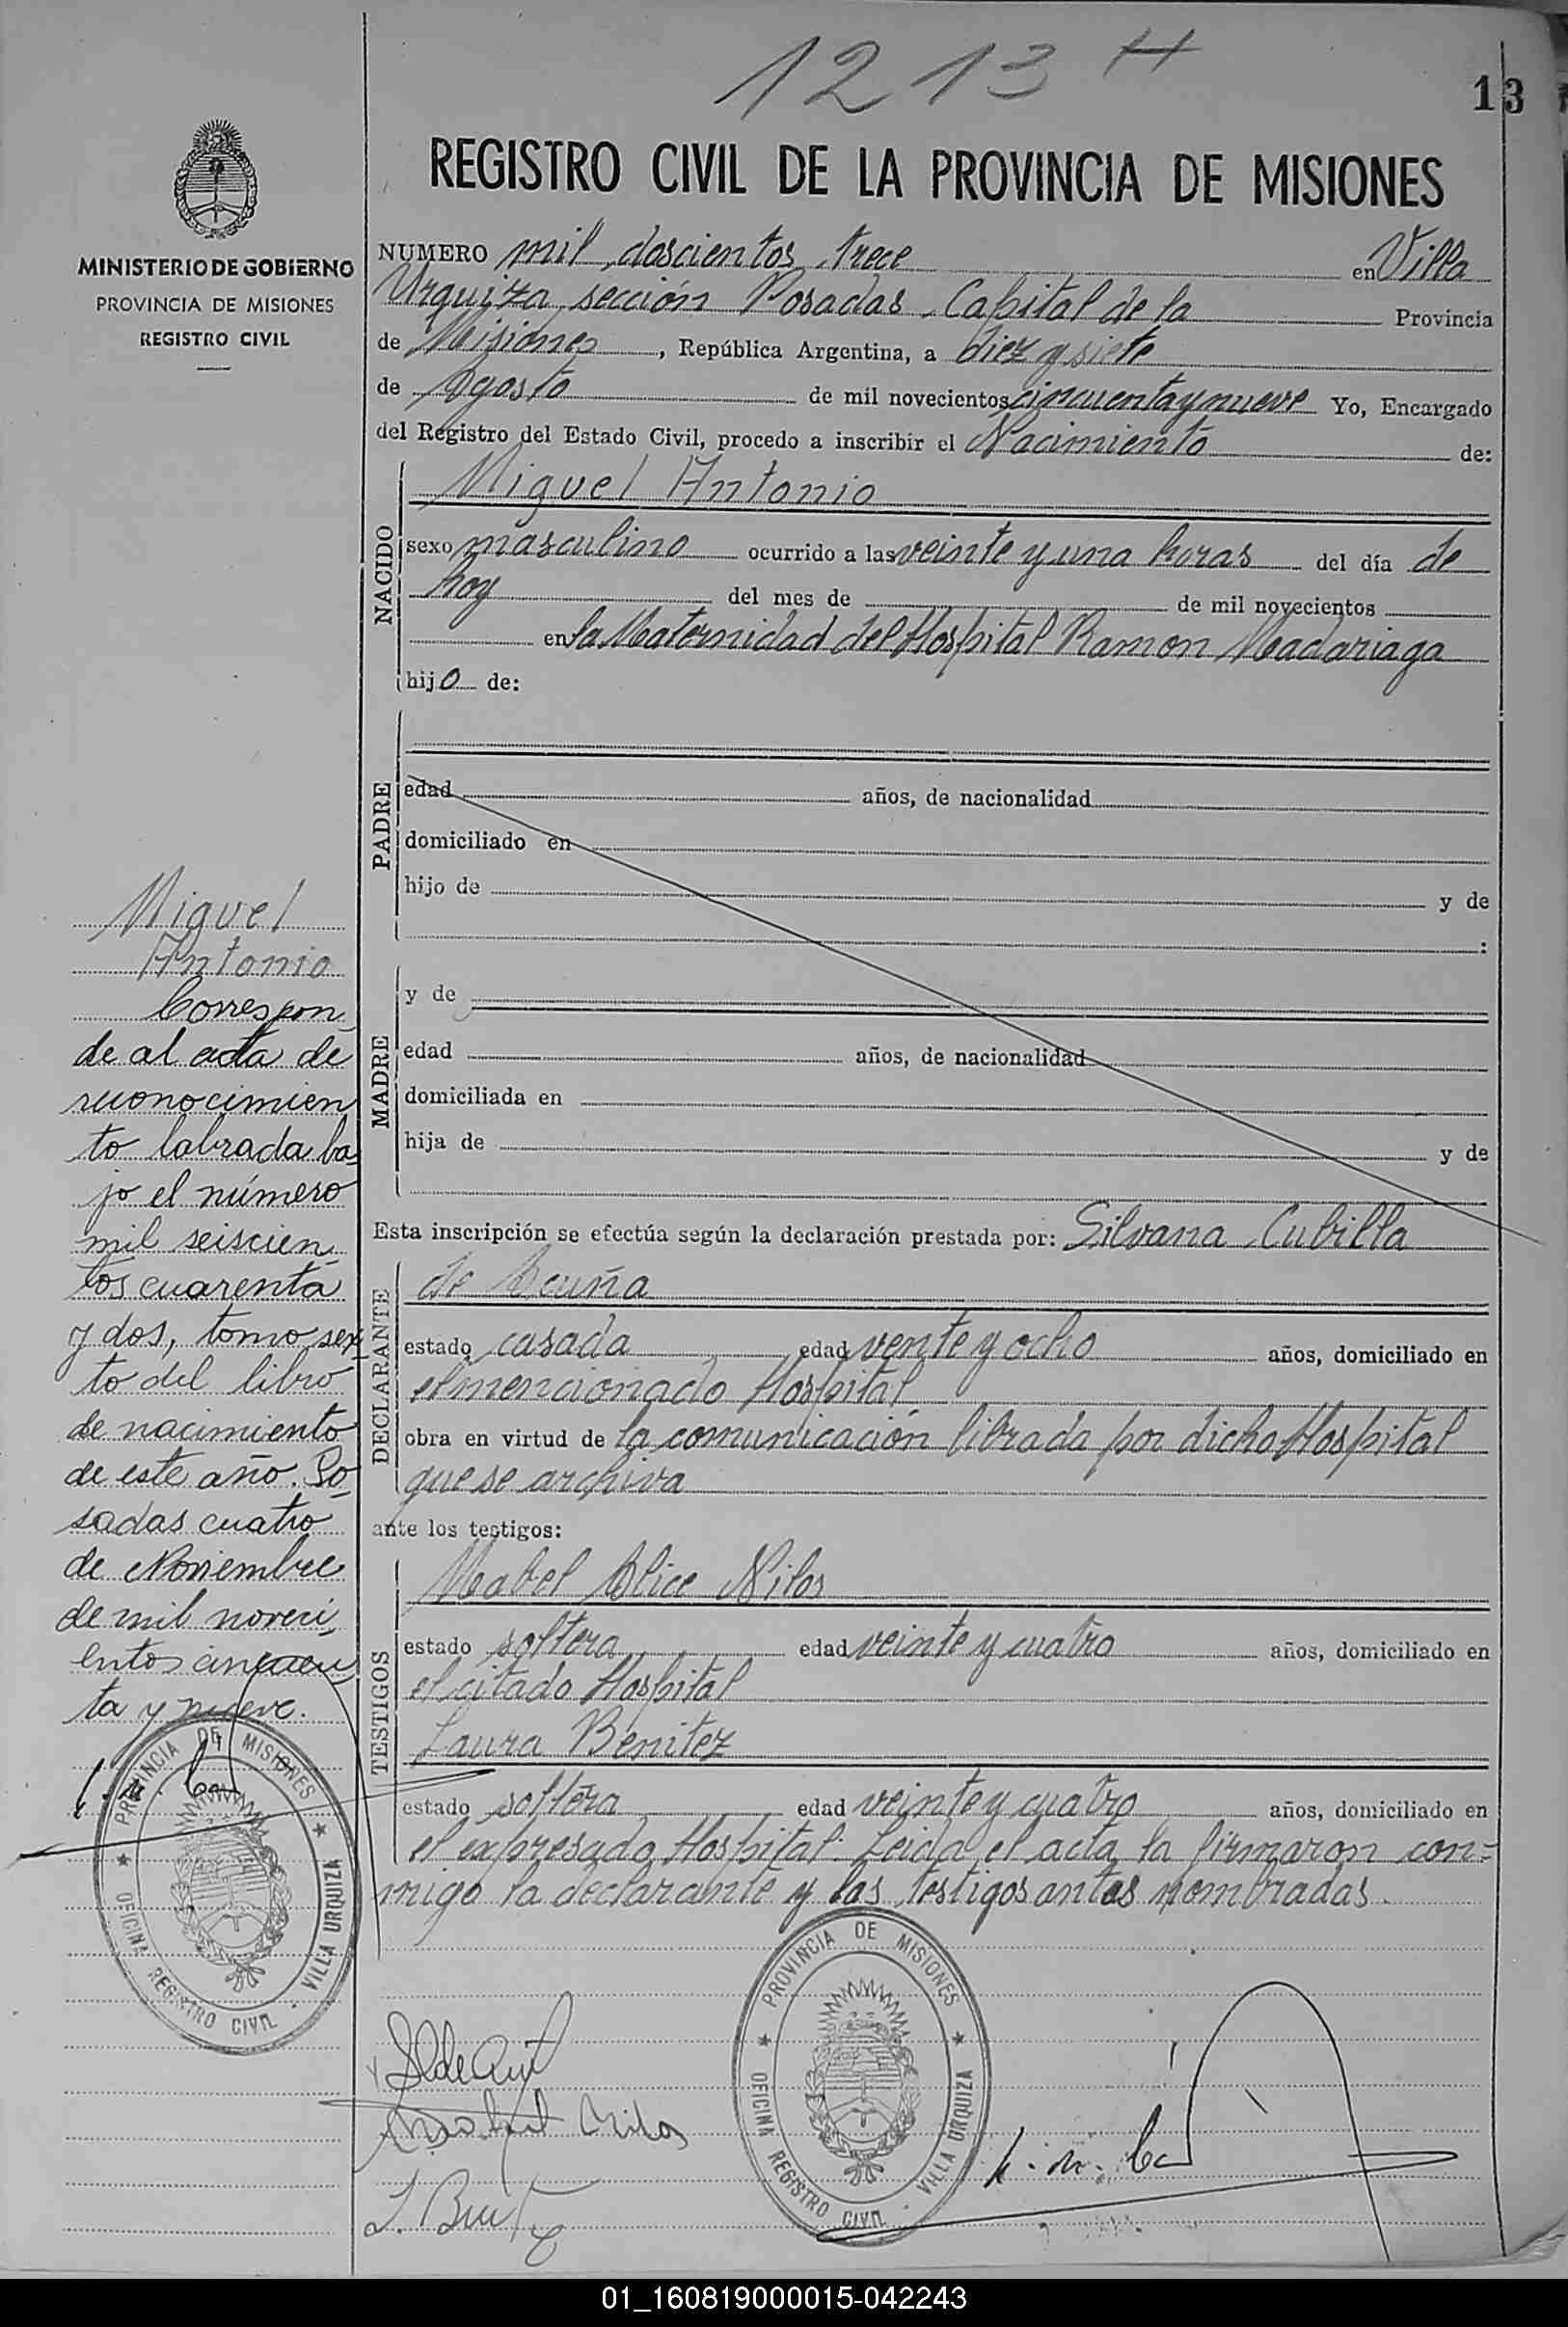 1213 H
13
REGISTRO CIVIL DE LA PROVINCIA DE MISIONES
MINISTERIO DE GOBIERNO
PROVINCIA DE MISIONES
REGISTRO CIVIL
NUMERO mil doscientos trece en Villa
Urquiza sección Posadas Capital de la Provincia
de Misiones, República Argentina, a diez y siete
de Agosto de mil novecientos cincuenta y nueve Yo, Encargado
del Registro del Estado Civil, procedo a inscribir el Nacimiento de:
NACIDO
Miguel Antonio
sexo masculino ocurrido a las veinte y una horas del día de
hoy del mes de de mil novecientos
en la Maternidad del Hospital Ramon Madariaga
hijo de:
PADRE
edad años, de nacionalidad
domiciliado en
hijo de y de
:
MADRE
y de
edad años, de nacionalidad
domiciliada en
hija de y de
Esta inscripción se efectúa según la declaración prestada por: Silvana Cubilla
DECLARANTE
de Acuña
estado casada edad vente y ocho años, domiciliado en
el mencionado Hospital
obra en virtud de la comunicación librada por dicho Hospital
que se archiva
ante los testigos:
TESTIGOS
Mabel Alice Nilos
estado soltera edad veinte y cuatro años, domiciliado en
el citado Hospital
Laura Benitez
estado soltera edad veinte y cuatro años, domiciliado en
el expresado Hospital. Leida el acta la firmaron con-
migo la declarante y las testigos antes nombradas.
Miguel
Antonio
Correspon-
de al acta de
reconocimien
to labrada ba-
jo el número
mil seiscien-
tos cuarenta
y dos, tomo sex-
to del libro
de nacimiento
de este año. Po-
sadas cuatro
de Noviembre
de mil noveci-
entos cincuen
ta y nueve.
PROVINCIA DE MISIONES
OFICINA REGISTRO CIVIL - VILLA URQUIZA
PROVINCIA DE MISIONES
OFICINA REGISTRO CIVIL - VILLA URQUIZA
01_160819000015-042243